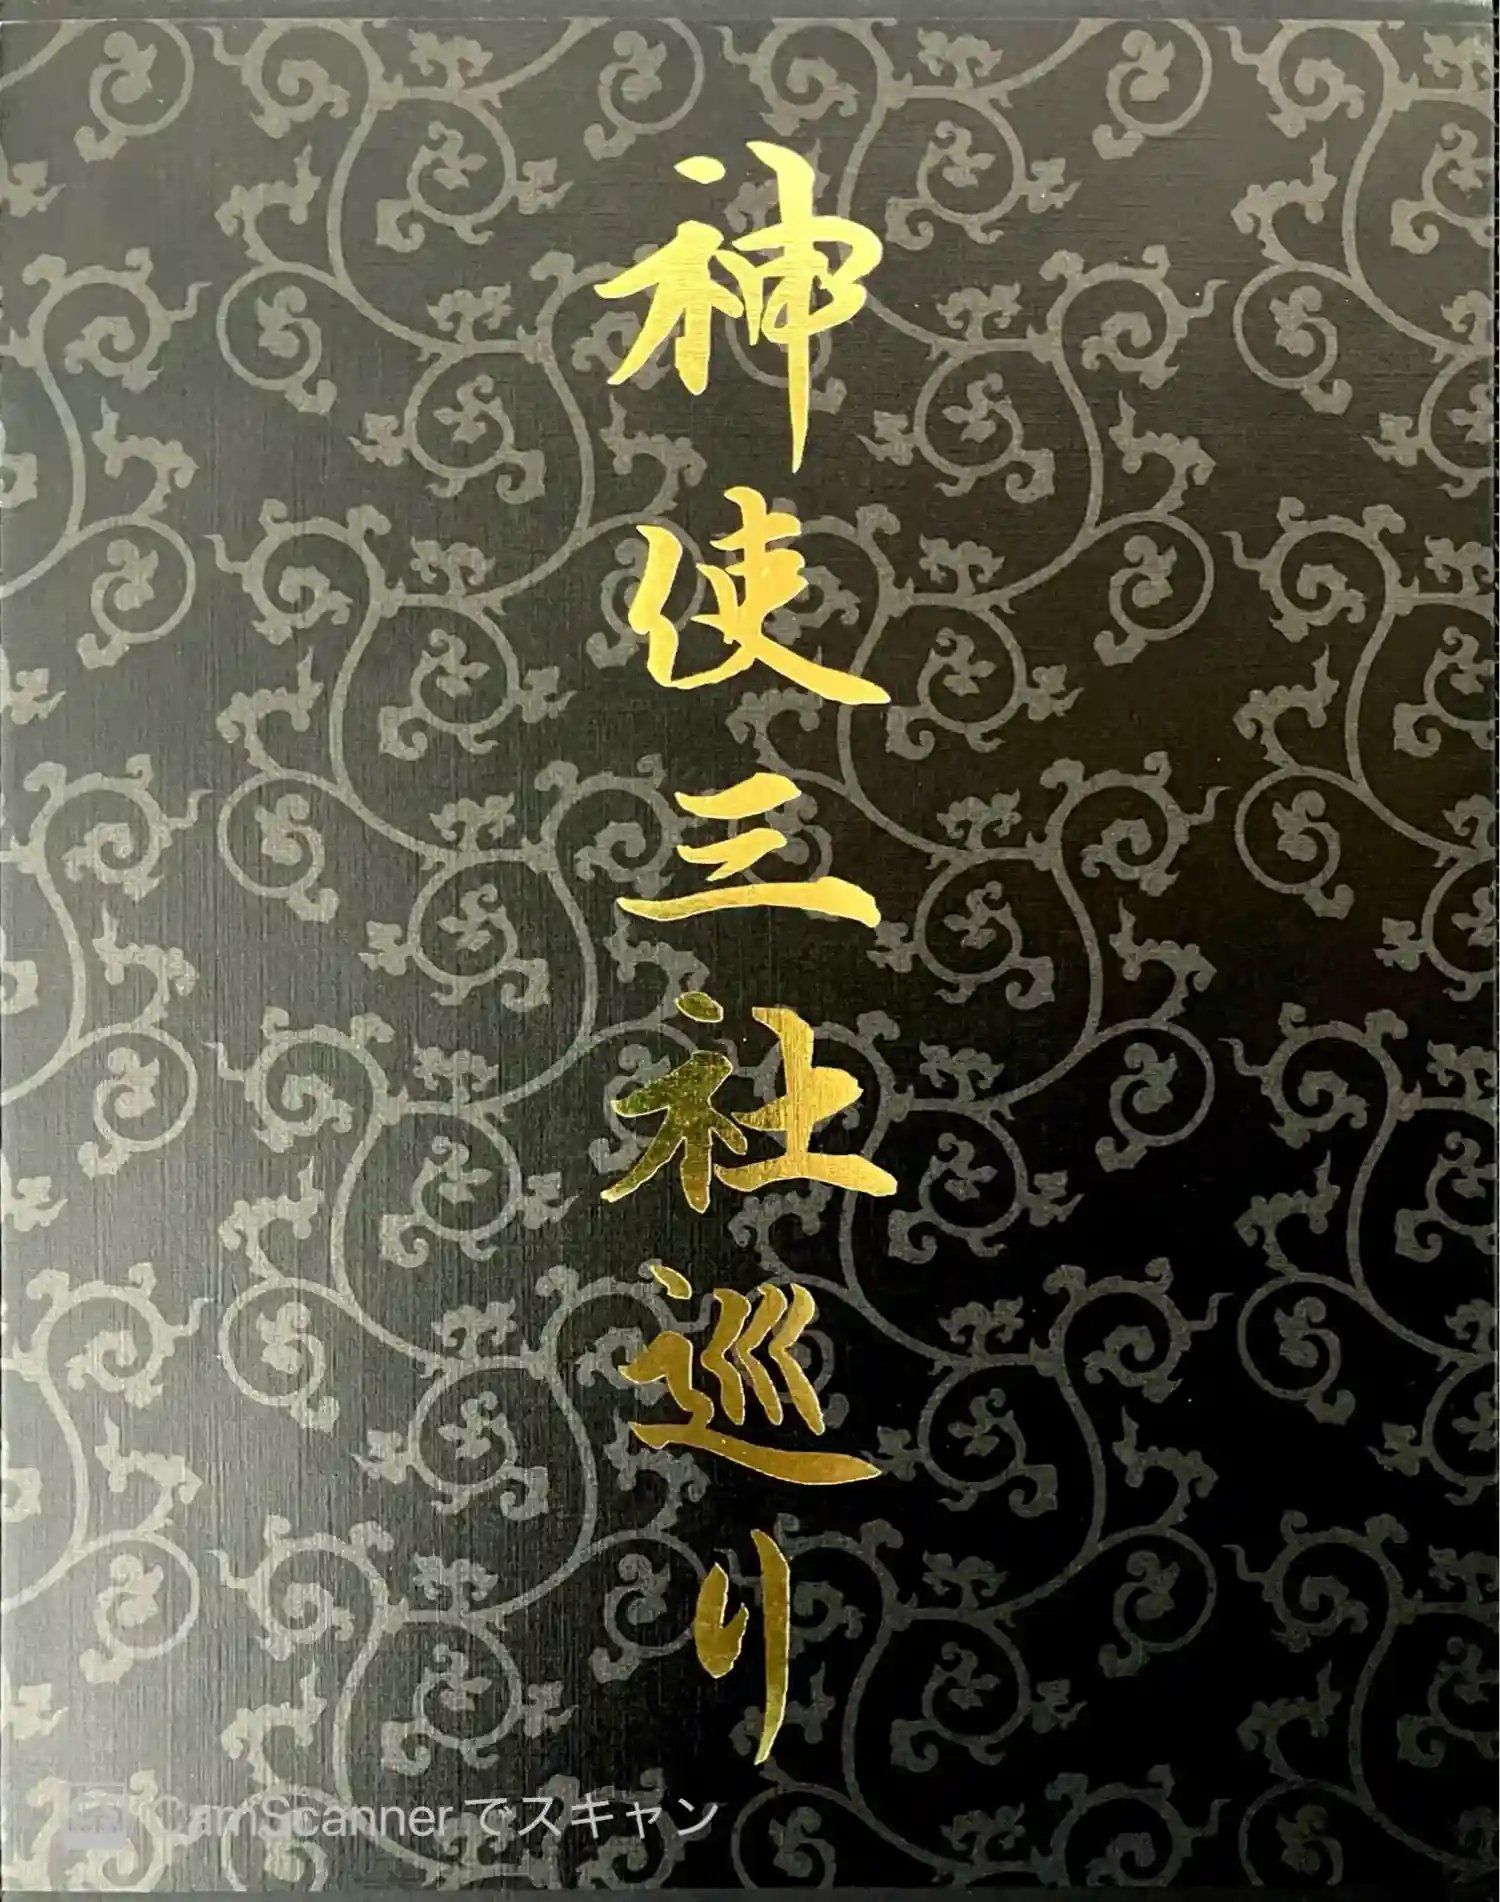 神使三社巡り
CamScanner でスキャン